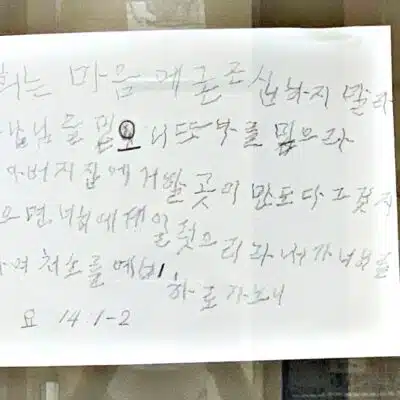 희는 마음에 근포심하지 말라
나님을 믿으니 또 나를 믿으라
아버지집에 거할 곳이 만도다 그렇지
으면 너희에게 일럿으리라 내가 너희를
하여 처소를 예비하로 가노니
요 14:1-2